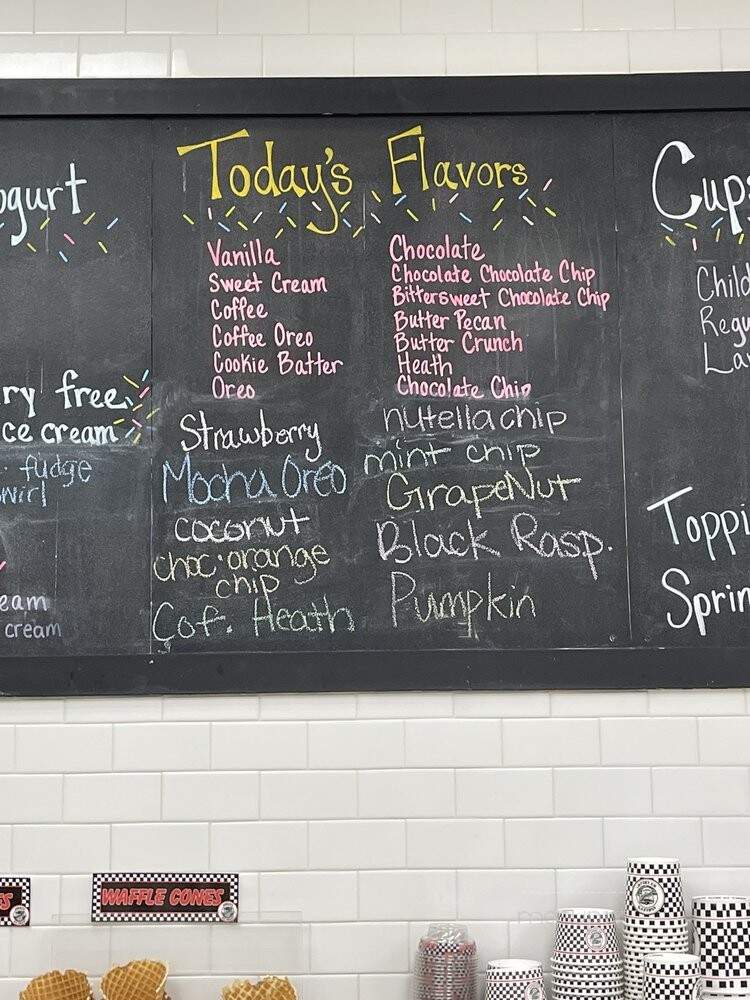 ogurt
ry free
ce cream
fudge
wirl
eam
cream
Today's Flavors
Vanilla
Sweet Cream
Coffee
Coffee Oreo
Cookie Batter
Oreo
Strawberry
Mocha Oreo
coconut
choc. orange
chip
Cof. Heath
Chocolate
Chocolate Chocolate Chip
Bittersweet Chocolate Chip
Butter Pecan
Butter Crunch
Heath
Chocolate Chip
nutella chip
mint chip
GrapeNut
Black Rasp.
Pumpkin
Cups
Child
Regu
La
Toppi
Sprin
ES
WAFFLE CONES